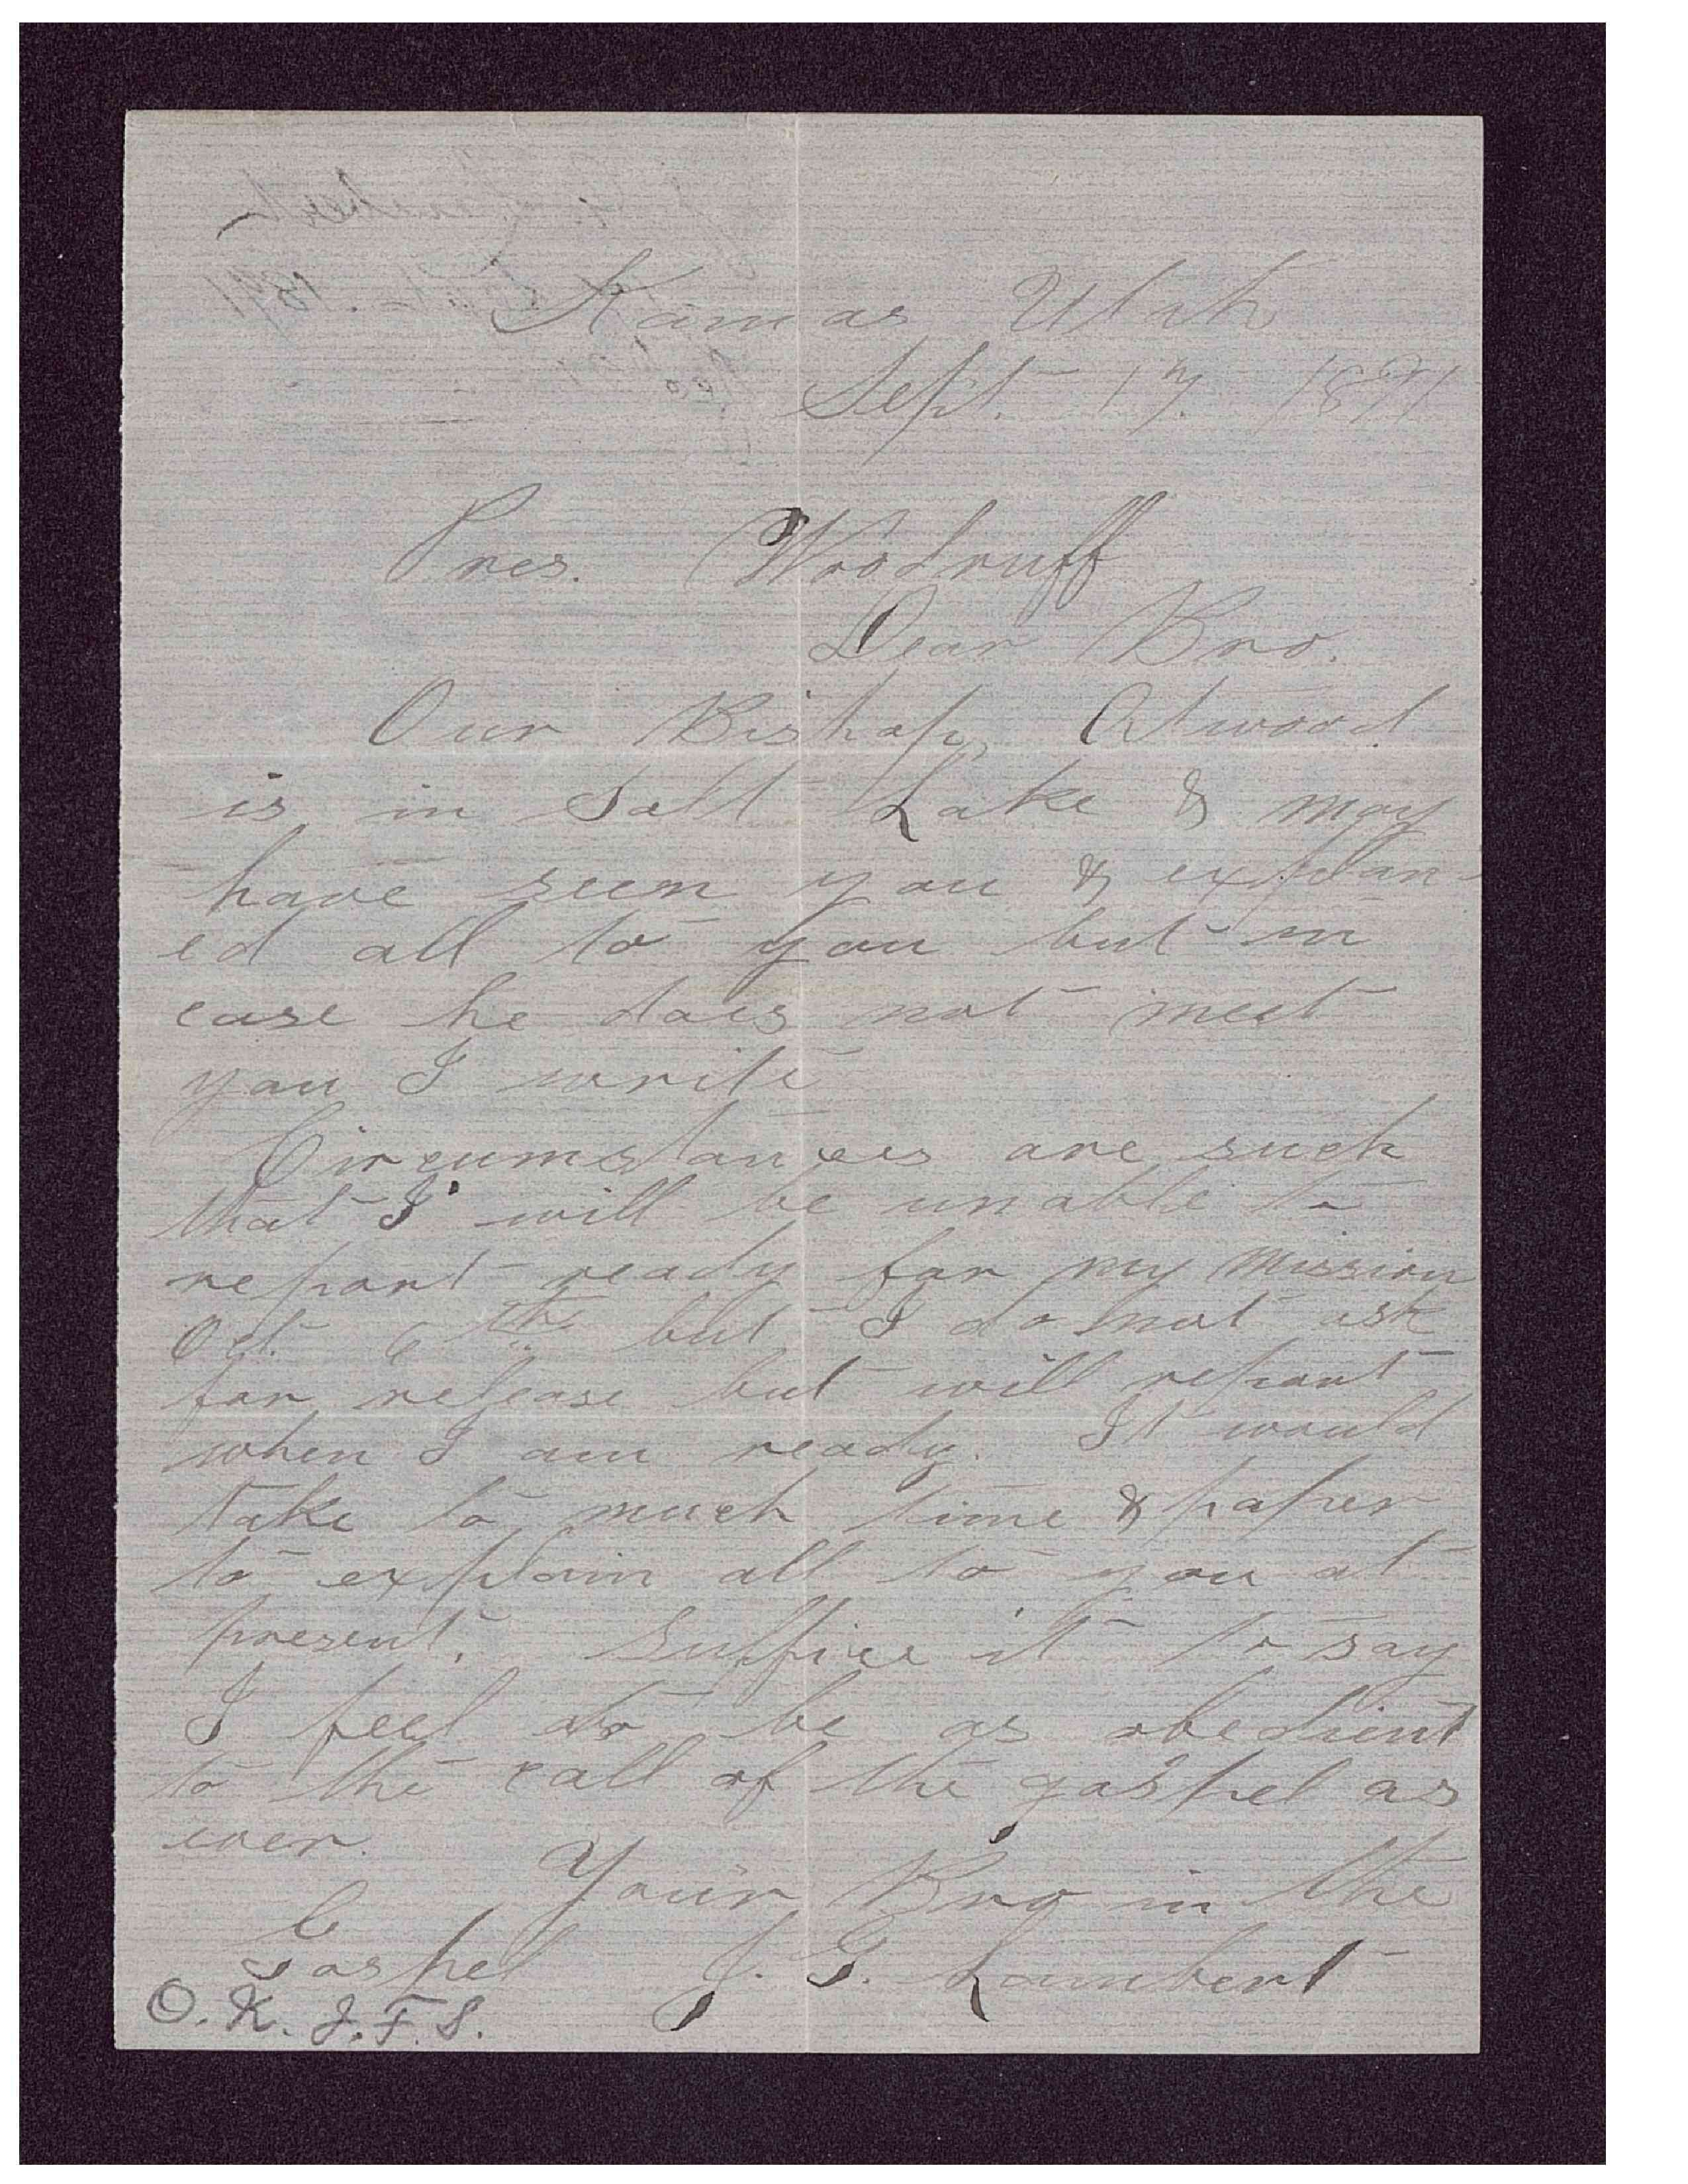 Kamas Utah
Sept. 17. 1891
Pres. Woodruff
Dear Bro.
Our Bishop, Atwood
is in Salt Lake & may
have seen you & explan-
ed all to you but in
case he does not meet
you I write
Circumstances are such
that I will be unable to
report ready for my mission
Oct. 6th but I do not ask
for release but will report
when I am ready. It would
take to much time & paper
to explain all to you at
present. Suffice it to say
I feel to be as obedient
to the call of the gospel as
ever.
Your Bro in the
Gospel J. G. Lambert
O.K. J.F.S.